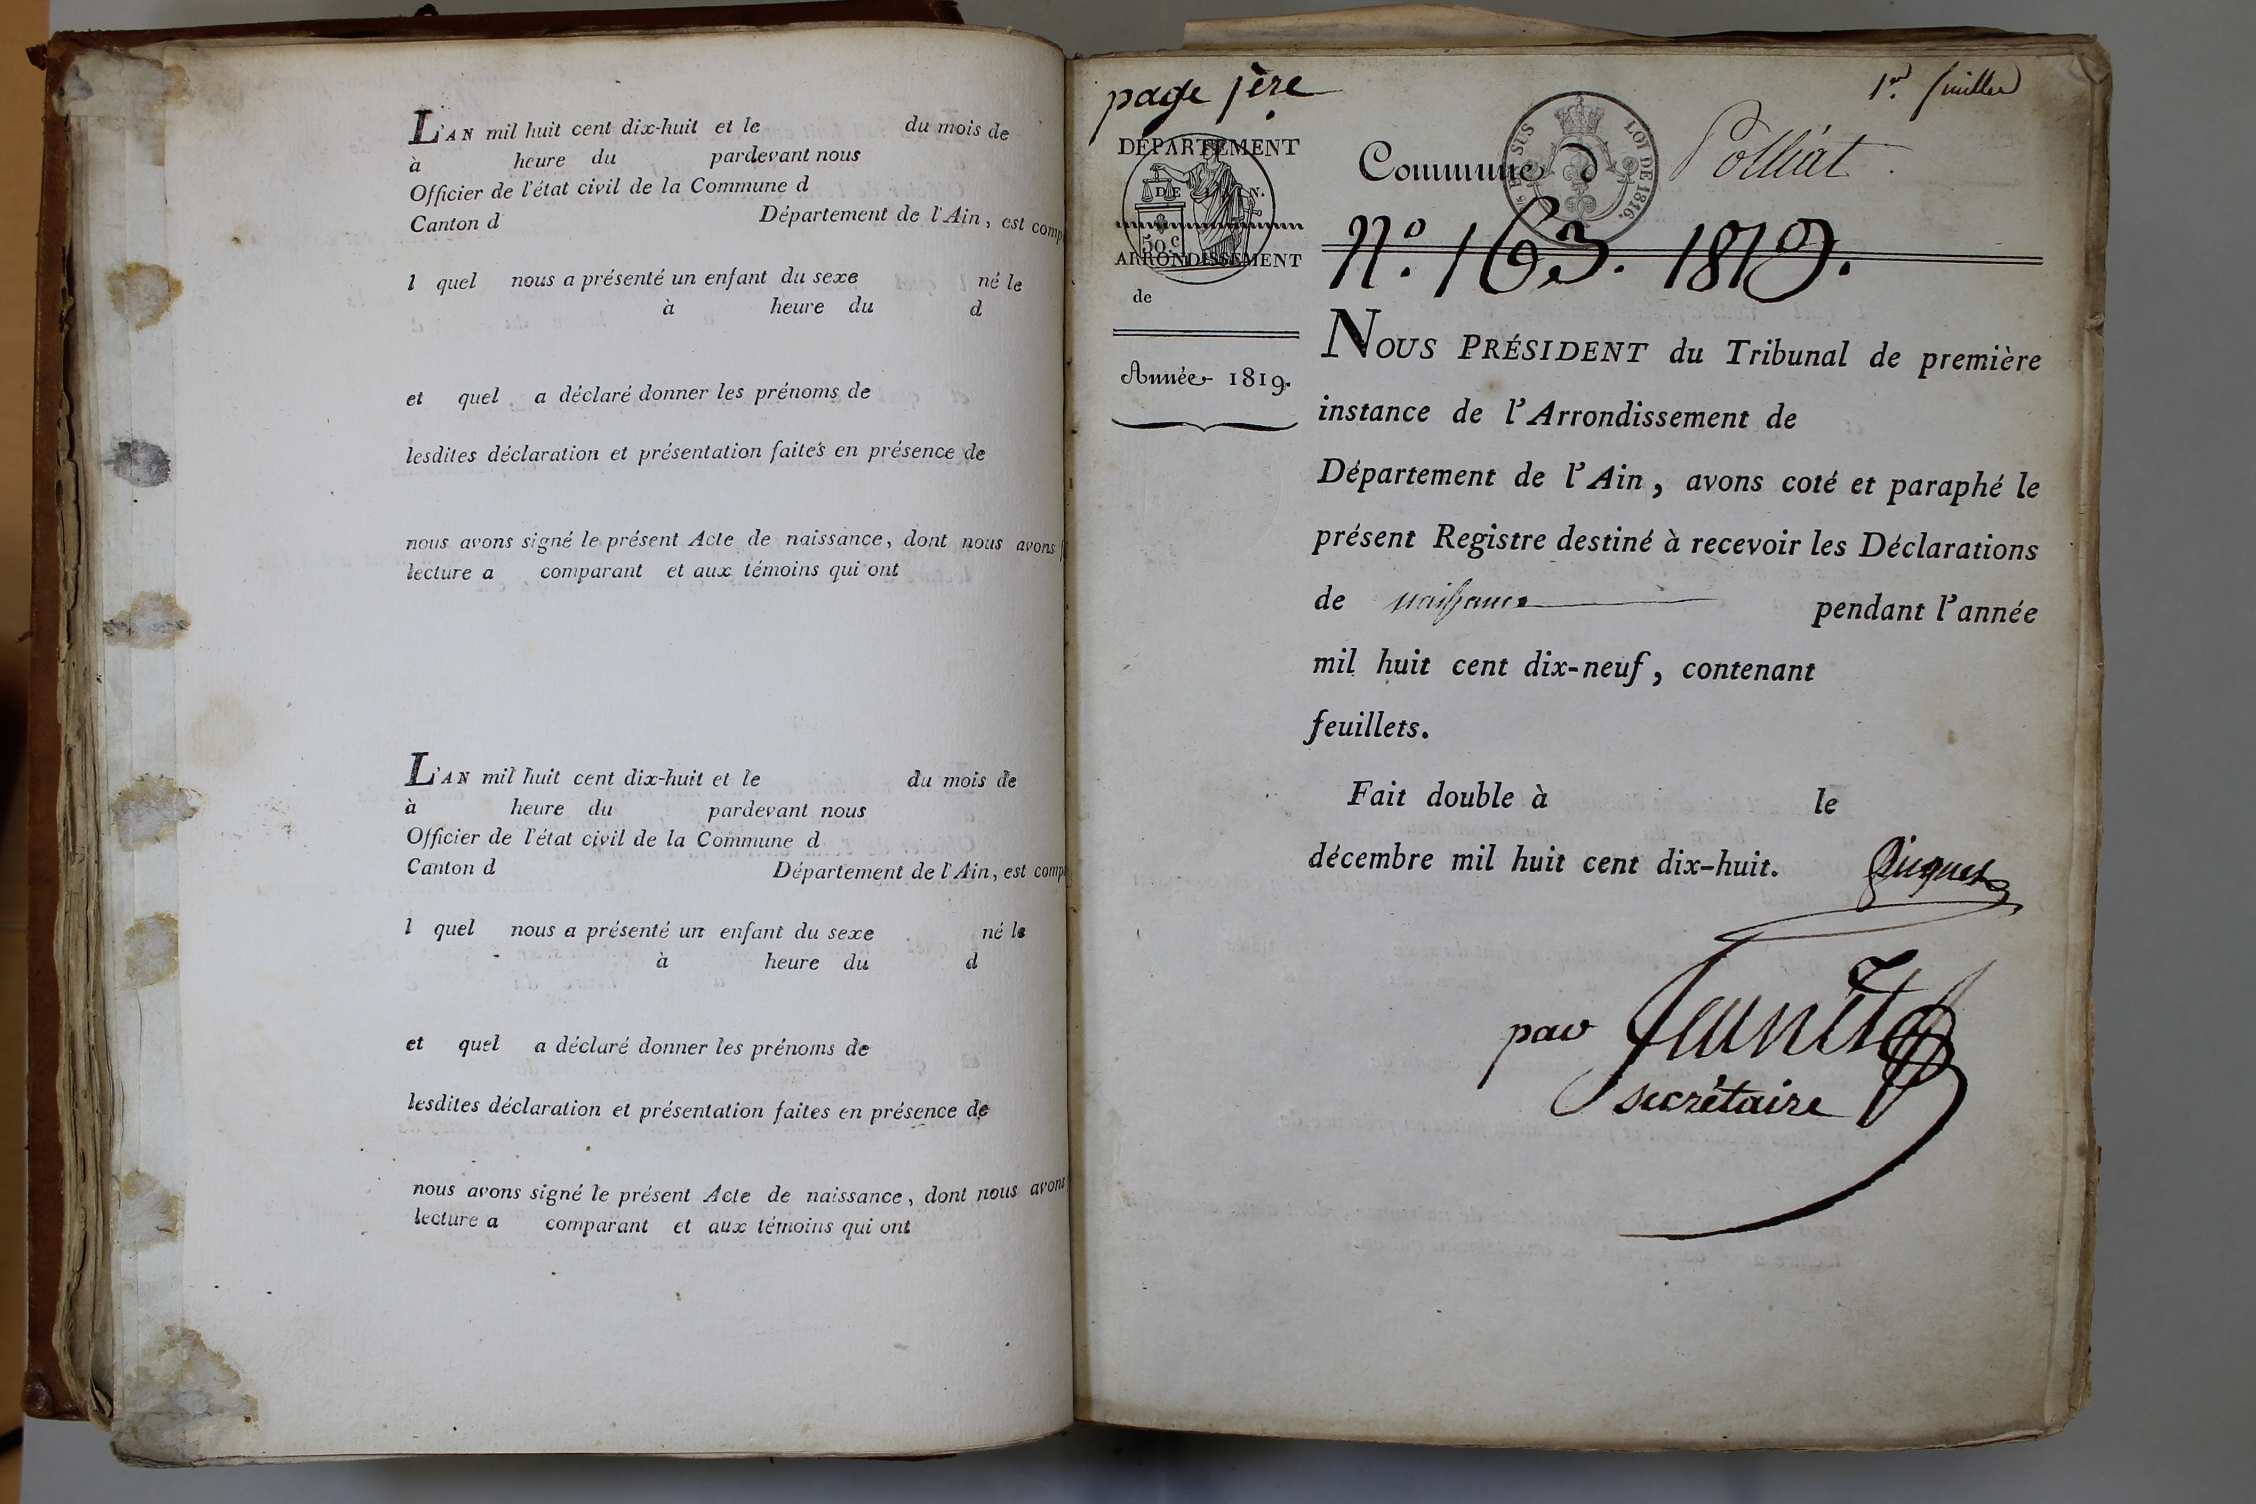 L'AN mil huit cent dix-huit et le du mois de
à heure du pardevant nous
Officier de l'état civil de la Commune d
Canton d Département de l'Ain, est comp
l quel nous a présenté un enfant du sexe né le
à heure du d
et quel a déclaré donner les prénoms de
lesdites déclaration et présentation faites en présence de
nous avons signé le présent Acte de naissance, dont nous avons
lecture a comparant et aux témoins qui ont
L'AN mil huit cent dix-huit et le du mois de
à heure du pardevant nous
Officier de l'état civil de la Commune d
Canton d Département de l'Ain, est comp
l quel nous a présenté un enfant du sexe né le
à heure du d
et quel a déclaré donner les prénoms de
lesdites déclaration et présentation faites en présence de
nous avons signé le présent Acte de naissance, dont nous avons
lecture a comparant et aux témoins qui ont
page 1ère
1er feuillet
DÉPARTEMENT
DE L'AIN.
50 c
ARRONDISSEMENT
de
Année 1819.
EN SUS LOI DE 1816.
Commune d Polliat
N.º 163. 1819.
NOUS PRÉSIDENT du Tribunal de première
instance de l'Arrondissement de
Département de l'Ain, avons coté et paraphé le
présent Registre destiné à recevoir les Déclarations
de naissance pendant l'année
mil huit cent dix-neuf, contenant
feuillets.
Fait double à le
décembre mil huit cent dix-huit.
par Jeunet
secrétaire